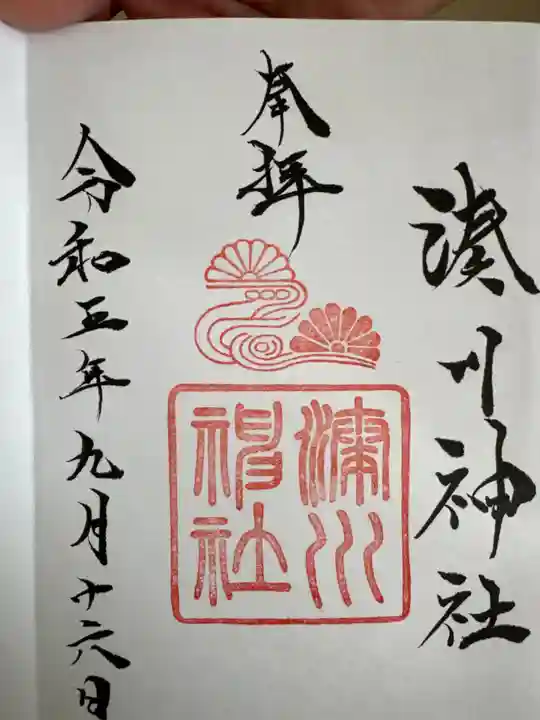 湊川神社
奉拝
湊川神社
令和五年九月十六日